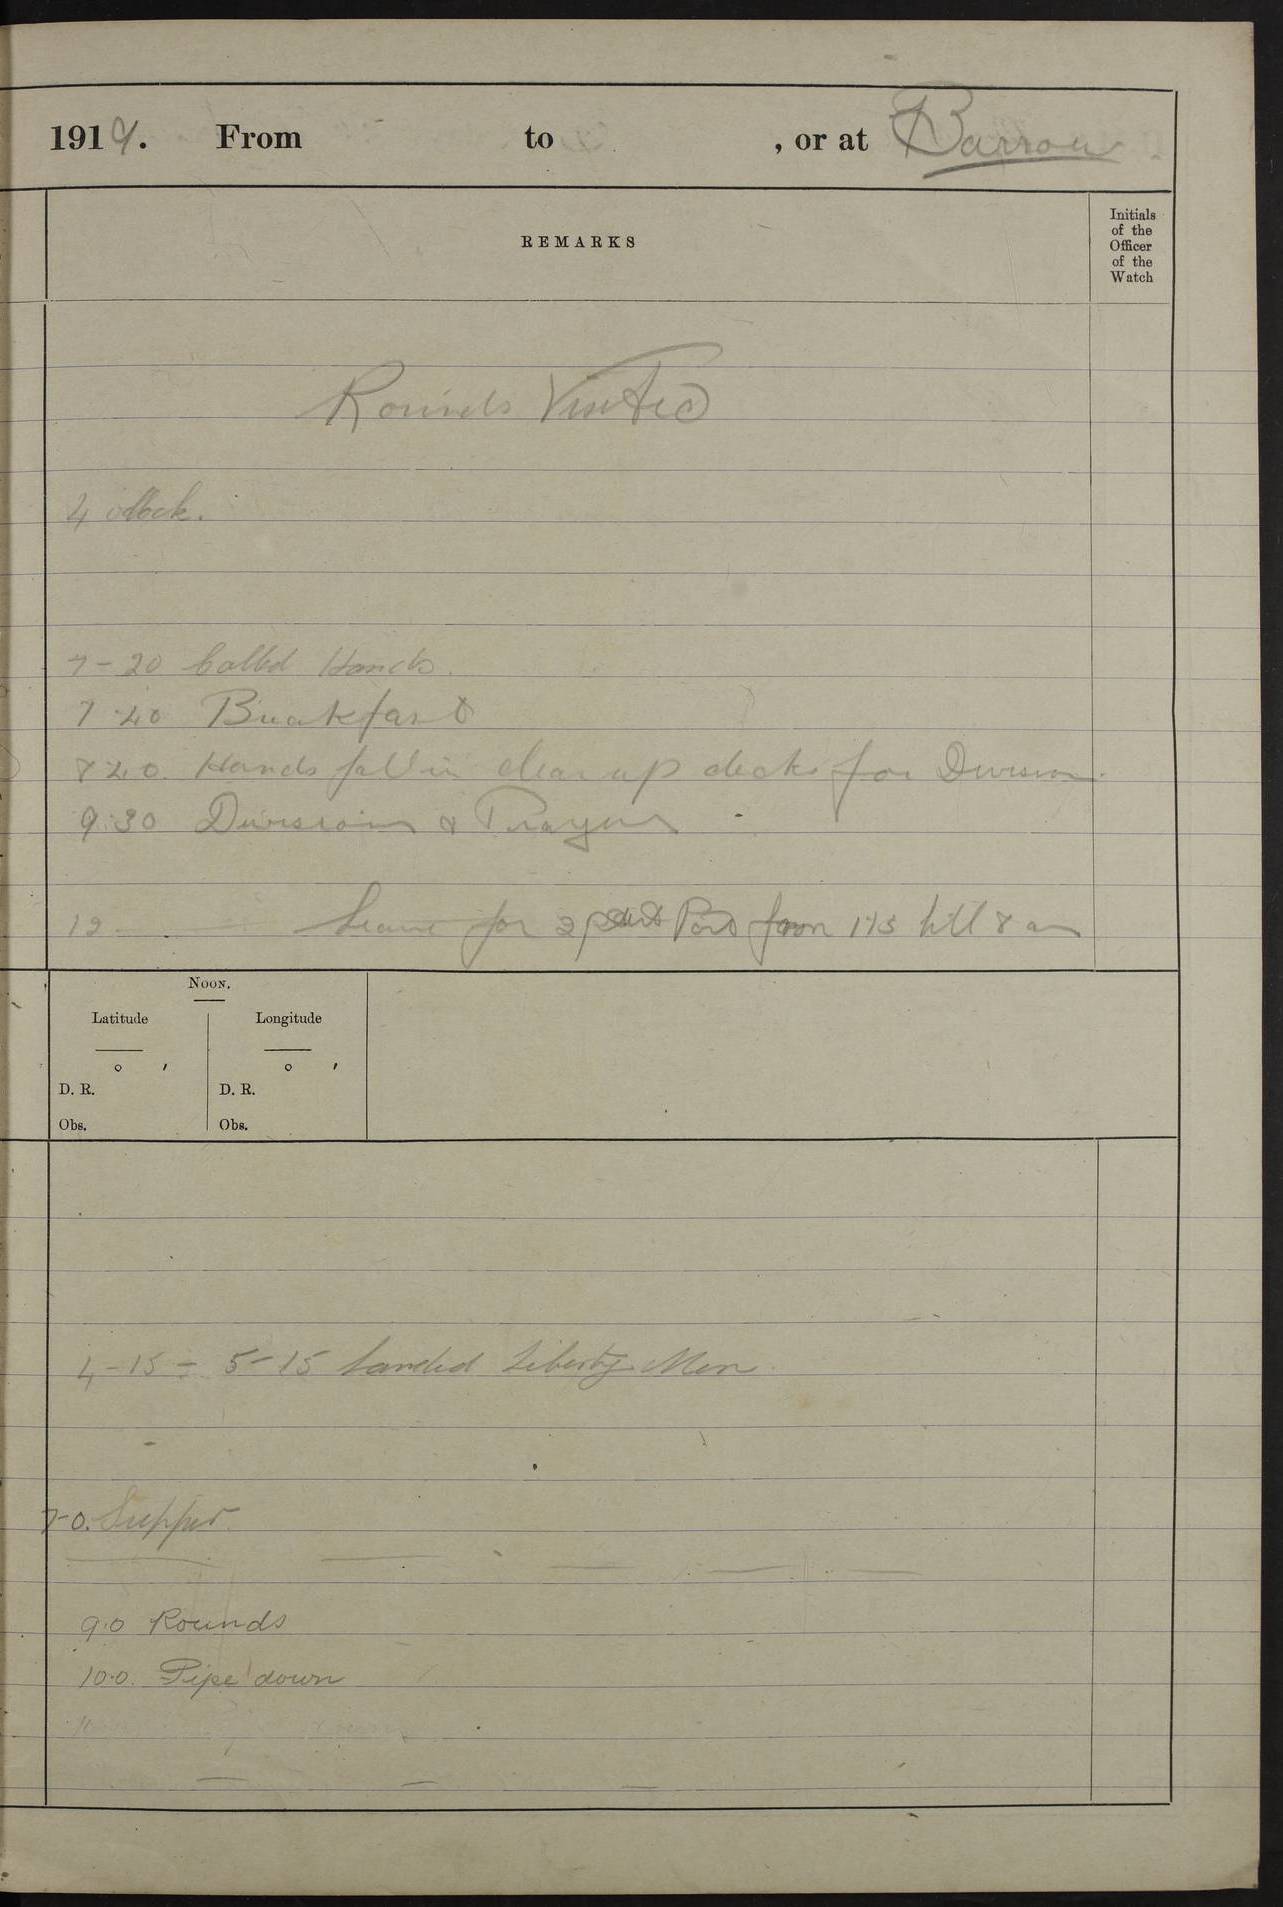 1919. From to , or at Barrow
REMARKS
Initials
of the
Officer
of the
Watch
Rounds Visited
4 oClock.
7-20 Called Hands.
7.40 Breakfast
8 40. Hands fall in clear up decks for Division.
9.30 Divisions & Prayers
12 Leave for 2 part Port from 1 15 till 8 am
NOON.
Latitude Longitude
° ′ ° ′
D. R. D. R.
Obs. Obs.
4-15 - 5-15 Landed Liberty Men
7-0. Supper.
9.0 Rounds
10.0. Pipe down